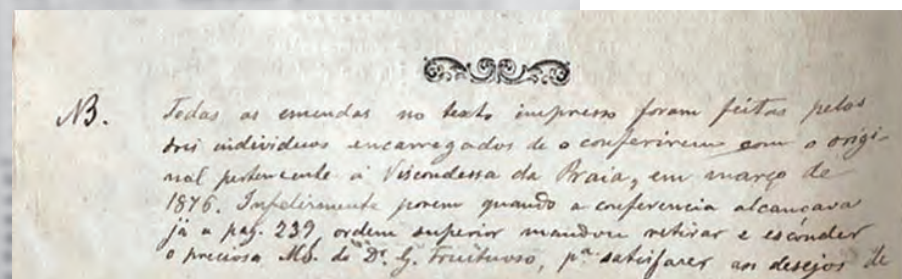 NB. Todas as emendas no texto impresso foram feitas pelos
dois individuos encarregados de o conferirem com o origi-
nal pertencente á Viscondessa da Praia, em março de
1876. Infelizmente porem quando a conferencia alcançava
já a pag. 239 ordem superior mandou retirar e esconder
o precioso Ms. do Dr. G. Fructuoso, pa. satisfazer aos desejos de